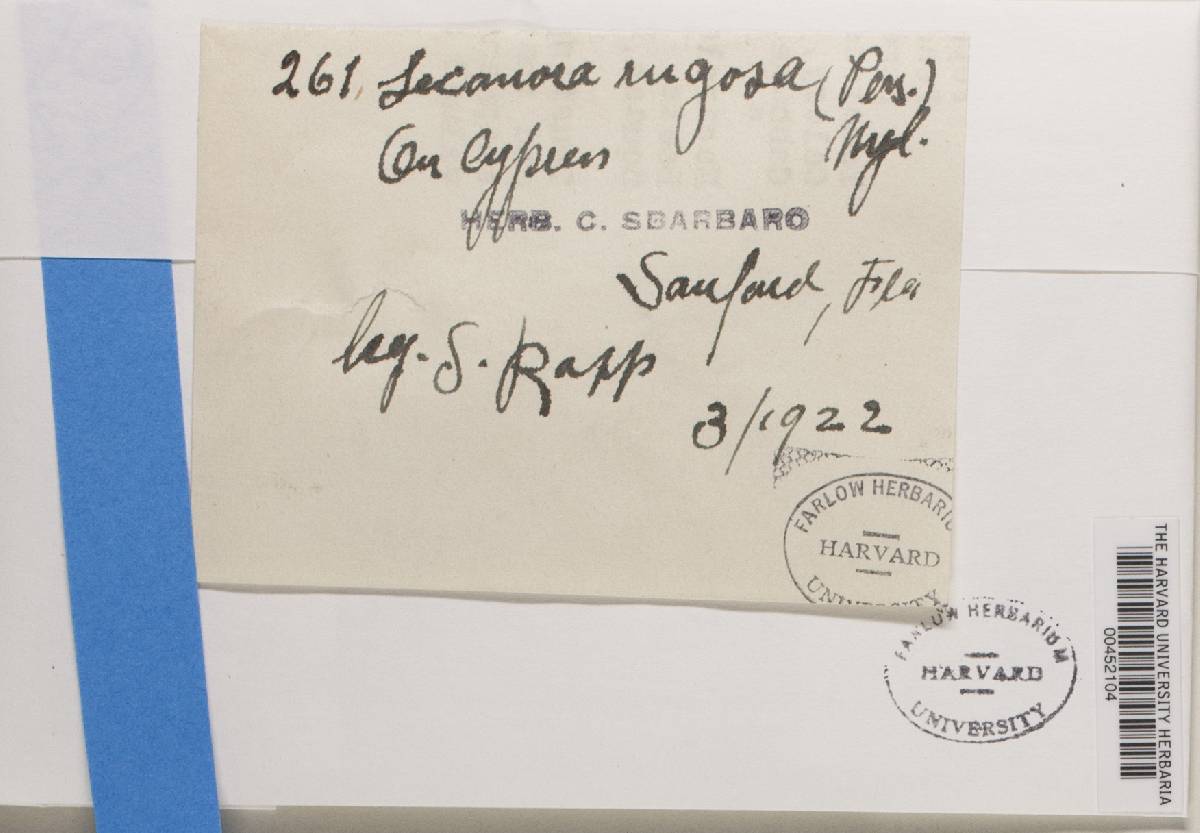 261. Lecanora rugosa (Pers.)
Nyl.
On Cypress
HERB. C. SBARBARO
Sanford, Fla
leg. S. Rapp
3/1922
FARLOW HERBARIU
HARVARD
UNIVERSITY
FARLOW HERBARIUM
HARVARD
UNIVERSITY
THE HARVARD UNIVERSITY HERBARIA
00452104